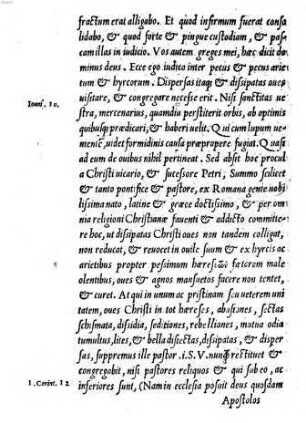 fractum erat alligabo. Et quod infirmum fuerat conso
lidabo, & quod forte & pingue custodiam, & pas
cam illas in iudicio. Vos autem greges mei, hæc dicit do
minus deus. Ecce ego iudico inter pecus & pecus arie
tum & hyrcorum. Dispersas itaq; & dissipatas oues
Ioan. 10.
uisitare, & congregare necesse erit. Nisi sanctitas ue
stra, mercenarius, quamdiu perstiterit orbis, ab optimis
quibusq; prædicari, & haberi uelit. Qui cum lupum ue
nientē, uidet formidinis causa præpropere fugiat. Quasi
ad eum de ouibus nihil pertineat. Sed absit hoc procul
a Christi uicario, & sucesore Petri, Summo scilicet
& tanto pontifice & pastore, ex Romana gente nobi
lissima nato, latine & græce doctissimo, & per om
nia religioni Christianæ fauenti & addicto committe
re hoc, ut dissipatas Christi oues non tandem colligat,
non reducat, & reuocet in ouile suum & ex hyrcis ac
arietibus propter pessimum hæresiωn fœtorem male
olentibus, oues & agnos mansuetos facere non tentet,
& curet. At qui in unum ac pristinam seu ueterem uni
tatem, oues Christi in tot hæreses, abusiones, sectas
schismata, dissidia, seditiones, rebelliones, mutua odia
tumultus, lites, & bella dissectas, dissipatas, & disper
sas, supremus ille pastor .i. S. V. nunq̃ restituet &
congregabit, nisi pastores reliquos & qui sub eo, ac
1. Corint. 12
inferiores sunt, (Nam in ecclesia posuit deus quosdam
Apostolos